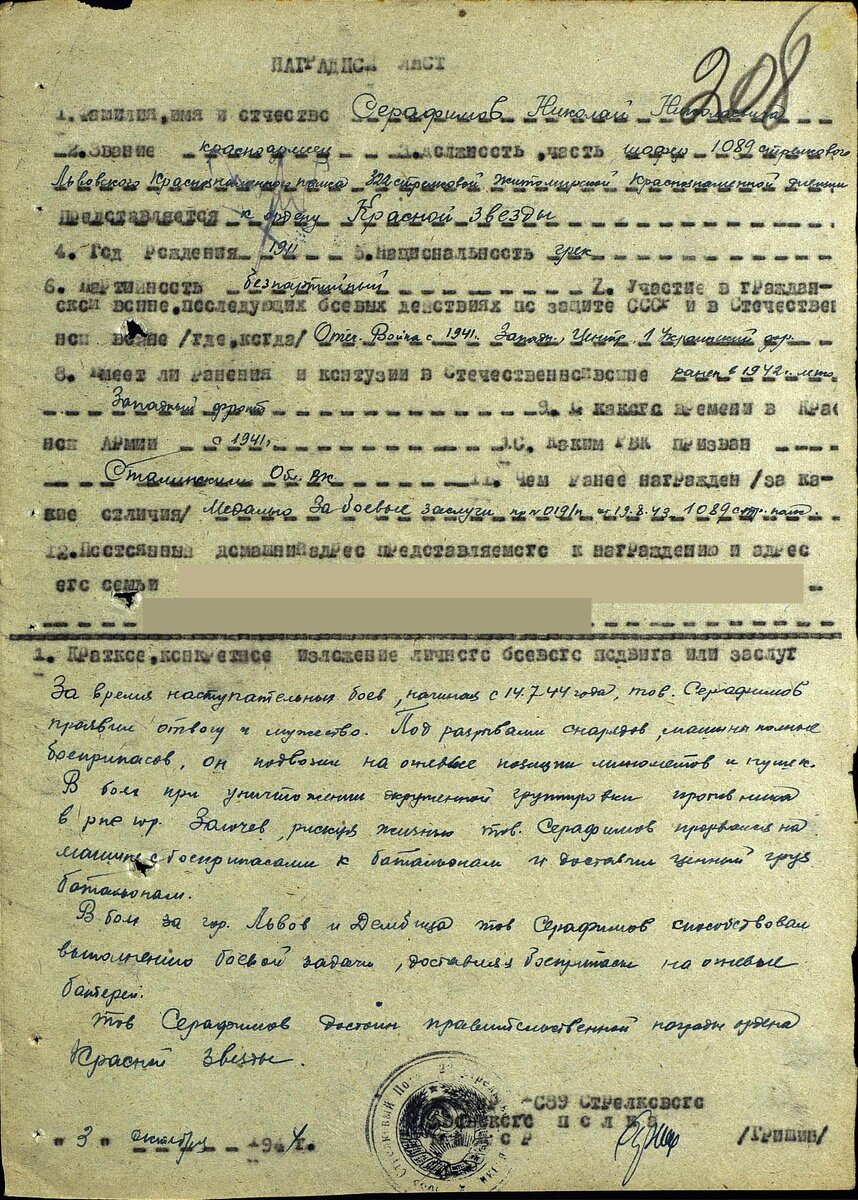 208
НАГРАДНОЙ ЛИСТ
1. Фамилия, имя и отчество Серафимов Николай Николаевич
2. Звание красноармеец 3. должность, часть шофер 1089 стрелкового
Львовского Краснознаменного полка 322 стрелковой Житомирской Краснознаменной дивизии
Представляется к ордену Красной звезды
4. Год рождения 1911 5. Национальность грек
6. Партийность безпартийный 7. Участие в граждан-
ской войне, последующих боевых действиях по защите СССР и в Отечествен
ной войне /где, когда/ Отеч. Война с 1941. Западн. Центр. 1 Украинский фр.
8. Имеет ли ранения и контузии в Отечественной войне ранен в 1942 г.
Западный фронт 9. С какого времени в Крас
ной Армии с 1941 г. 10. Каким РВК призван
Сталинским Обл. ВК 11. Чем ранее награжден /за ка-
кие отличия/ Медалью За боевые заслуги пр н 019/н от 19.8.43 1089 стр. полк.
12. Постоянный домашний адрес представляемого к награждению и адрес
его семьи
1. Краткое, конкретное изложение личного боевого подвига или заслуг
За время наступательных боев, начиная с 14.7.44 года, тов. Серафимов
проявил отвагу и мужество. Под разрывами снарядов, машины полные
боеприпасов, он подвозил на огневые позиции минометов и пушек.
В боях при уничтожении окруженной группировки противника
в р-не гор. Залочев, рискуя жизнью тов. Серафимов прорвался на
машине с боеприпасами к батальонам и доставил ценный груз
батальонам.
В боях за гор. Львов и Дембица тов Серафимов способствовал
выполнению боевой задачи, доставляя боеприпасы на огневые
батареи.
тов Серафимов достоин правительственной награды ордена
Красной Звезды.
1089 Стрелкового
Львовского полка
"3" октября 1944 г. /Гришин/